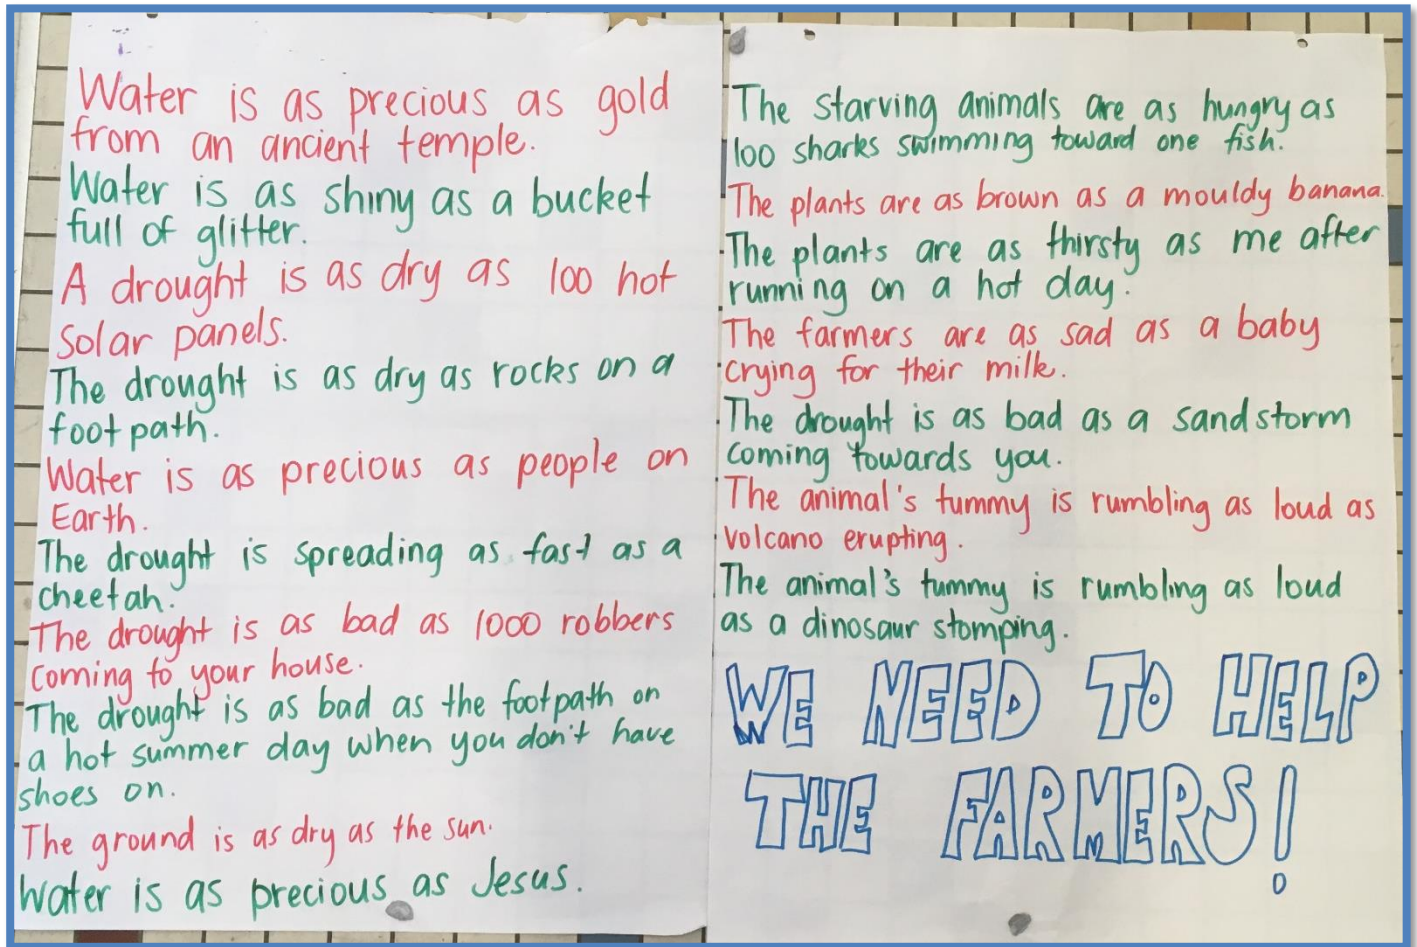 Water is as precious as gold
from an ancient temple.
Water is as shiny as a bucket
full of glitter.
A drought is as dry as 100 hot
solar panels.
The drought is as dry as rocks on a
foot path.
Water is as precious as people on
Earth.
The drought is spreading as fast as a
cheetah.
The drought is as bad as 1000 robbers
coming to your house.
The drought is as bad as the footpath on
a hot summer day when you don't have
shoes on.
The ground is as dry as the sun.
Water is as precious as Jesus.
The starving animals are as hungry as
100 sharks swimming toward one fish.
The plants are as brown as a mouldy banana.
The plants are as thirsty as me after
running on a hot day.
The farmers are as sad as a baby
crying for their milk.
The drought is as bad as a sandstorm
coming towards you.
The animal's tummy is rumbling as loud as
volcano erupting.
The animal's tummy is rumbling as loud
as a dinosaur stomping.
WE NEED TO HELP
THE FARMERS!